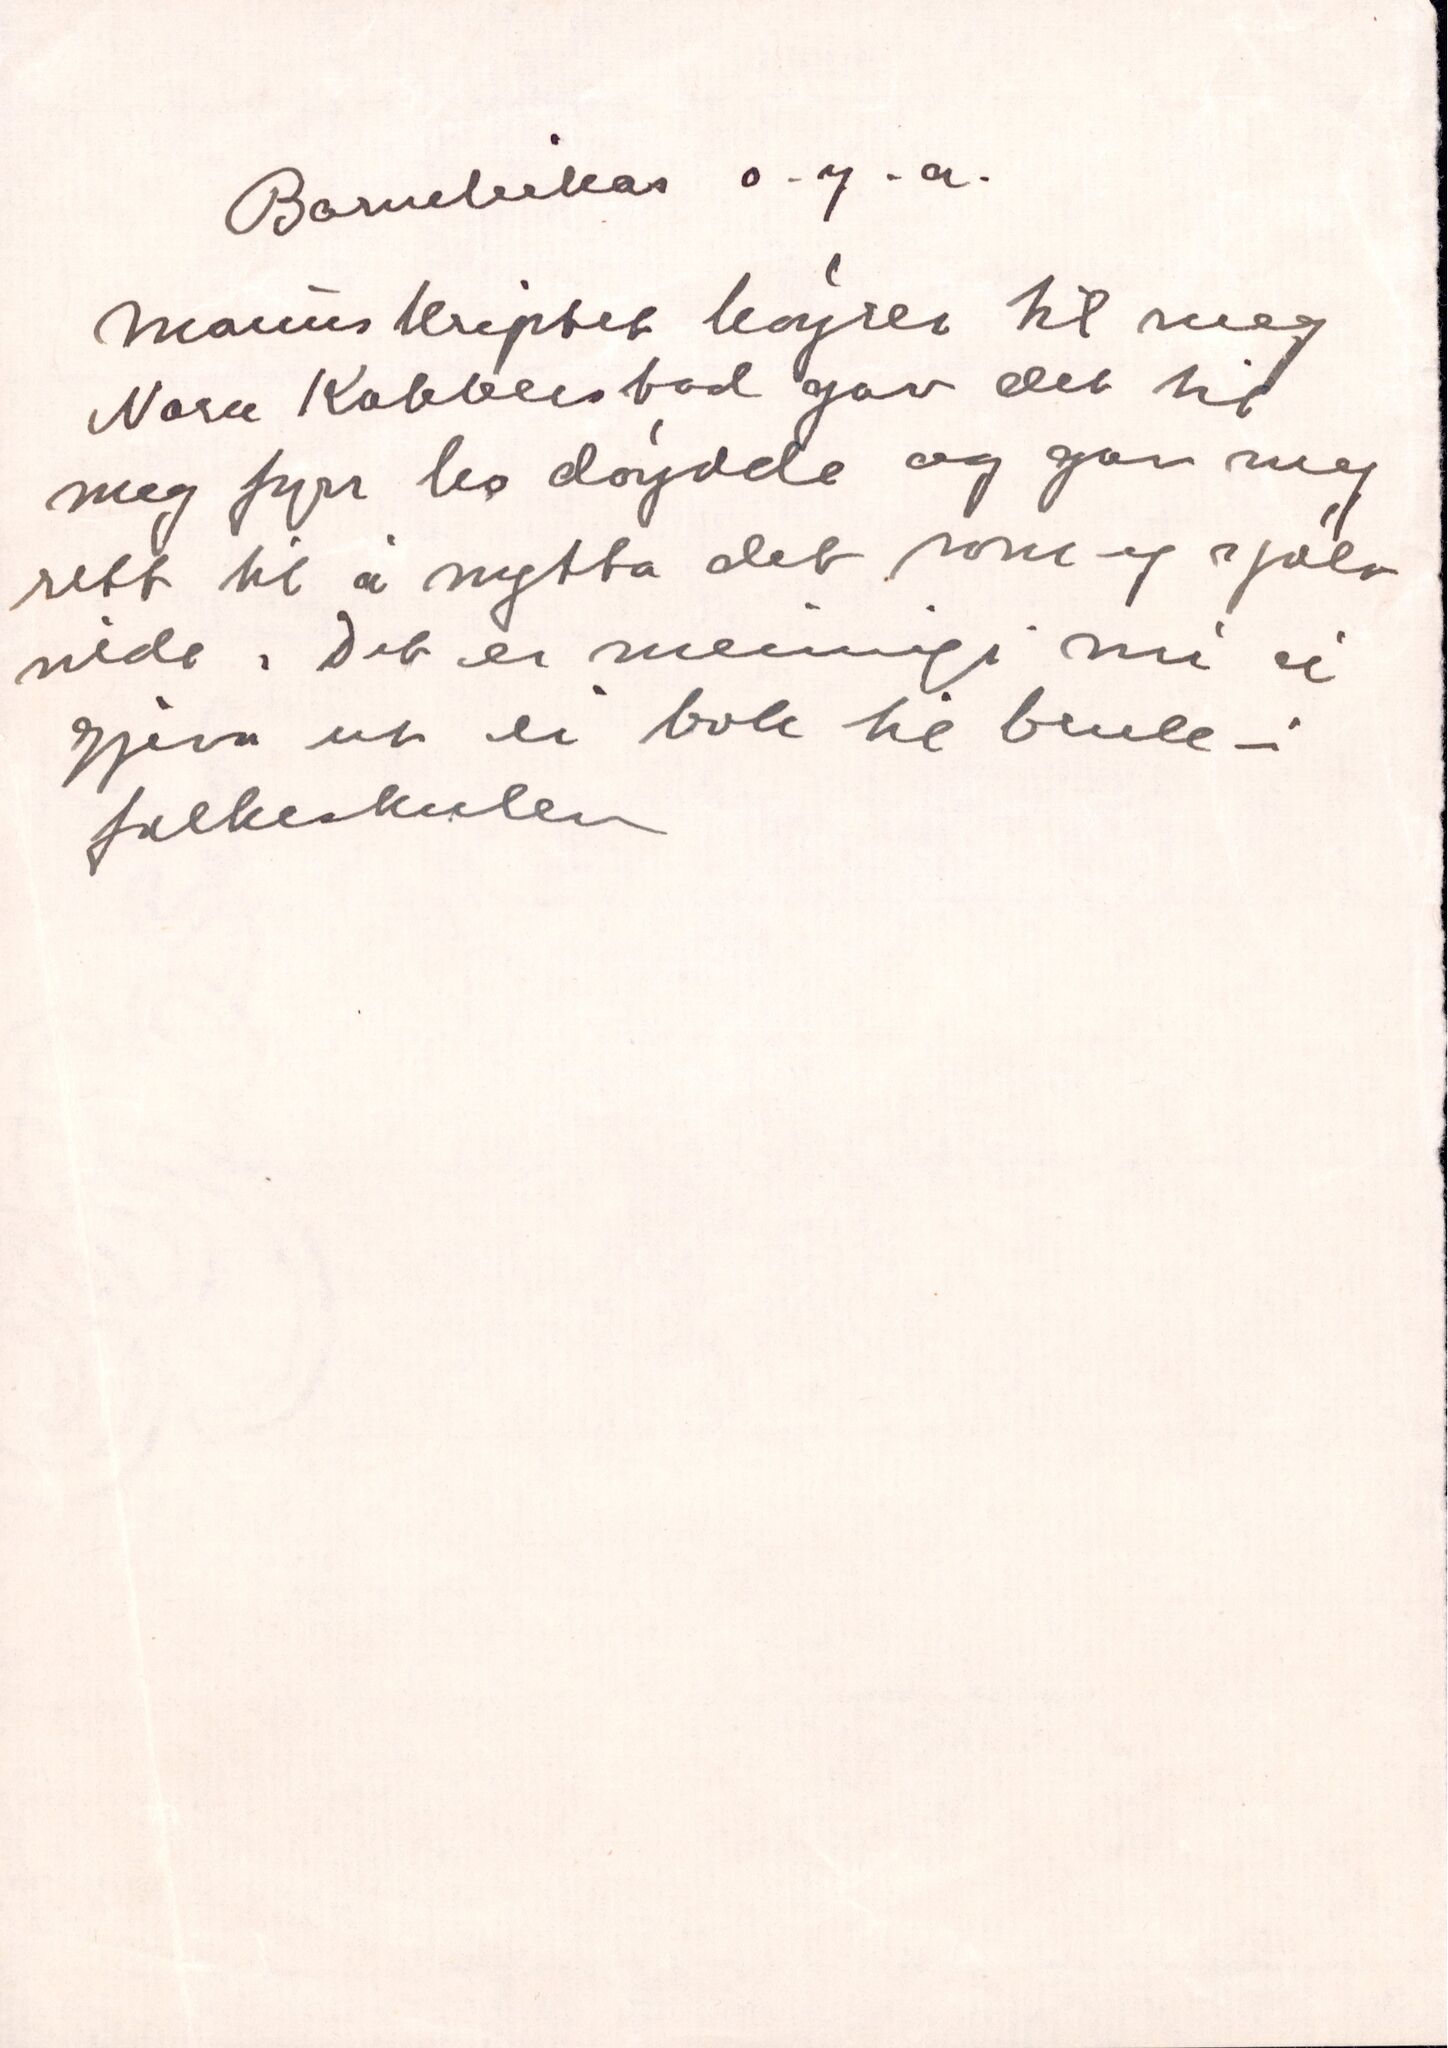 Barneleikar o.y.a.
Manuskriptet høyrer til meg
Nora Kobberstad gav det til
meg fyrr ho døydde og gav meg
rett til å nytta det som eg sjølv
vilde. Det er meiningi mi å
gjeva ut ei bok til bruk i
folkeskulen